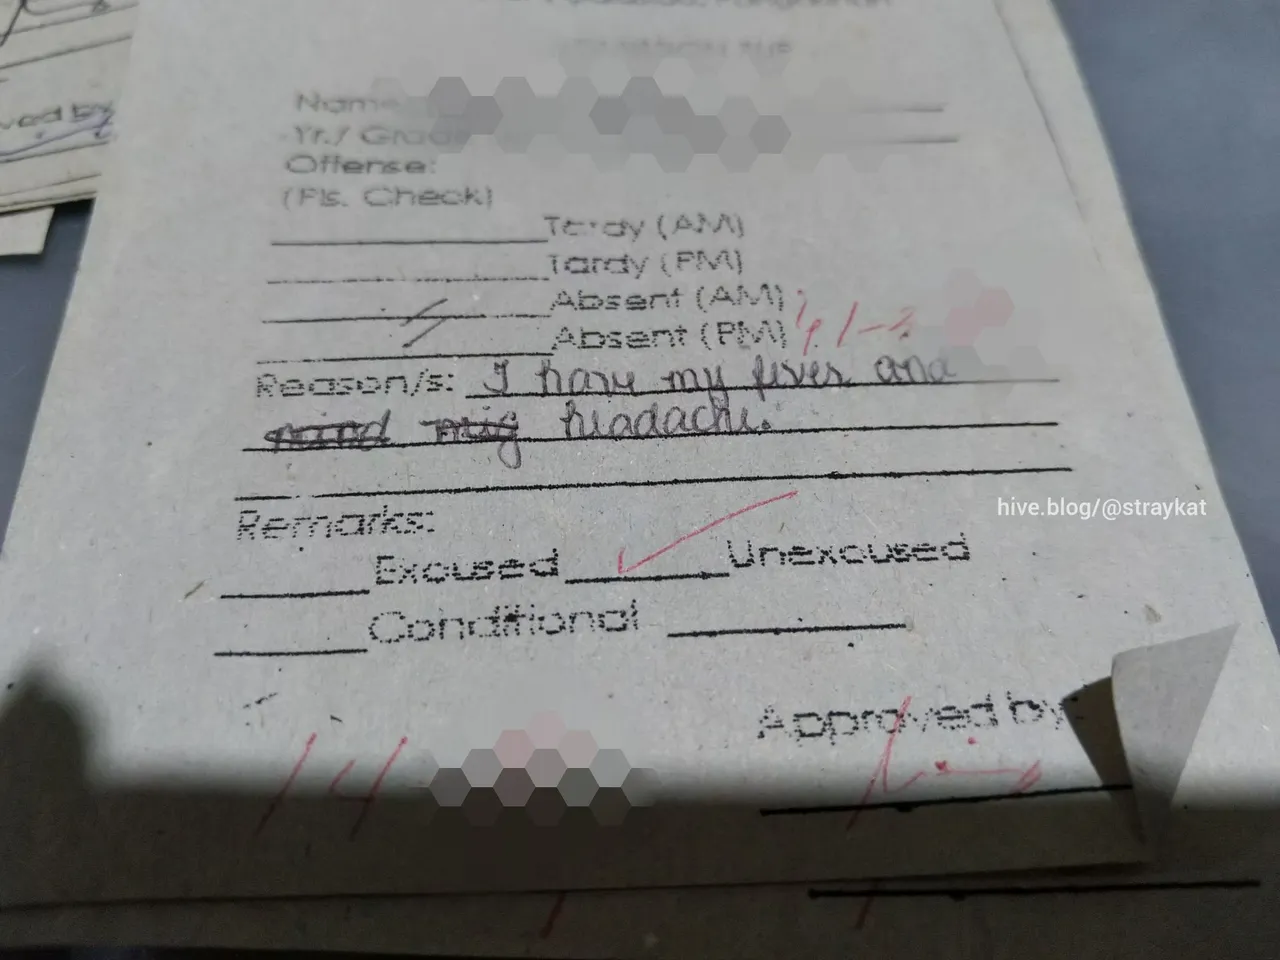 Name
Yr./ Grade
Offense:
(Pls. Check)
Tardy (AM)
Tardy (PM)
Absent (AM)
Absent (PM)
Reason/s: I have my fever and
headache.
Remarks:
Excused Unexcused
Conditional
Approved by
hive.blog/@straykat